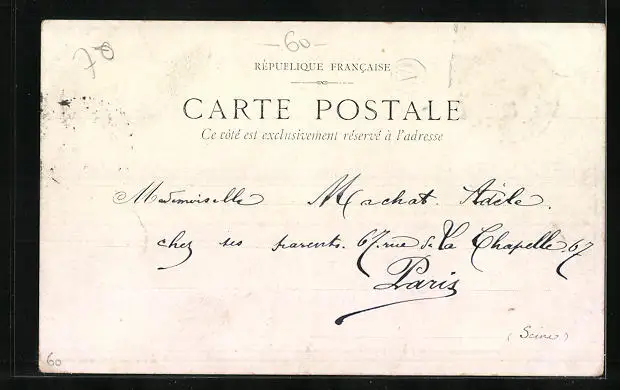 70
60
RÉPUBLIQUE FRANÇAISE
CARTE POSTALE
Ce côté est exclusivement réservé à l'adresse
Mademoiselle Machat. Adèle.
chez ses parents. 67. rue de la Chapelle. 67
Paris
(Seine)
60